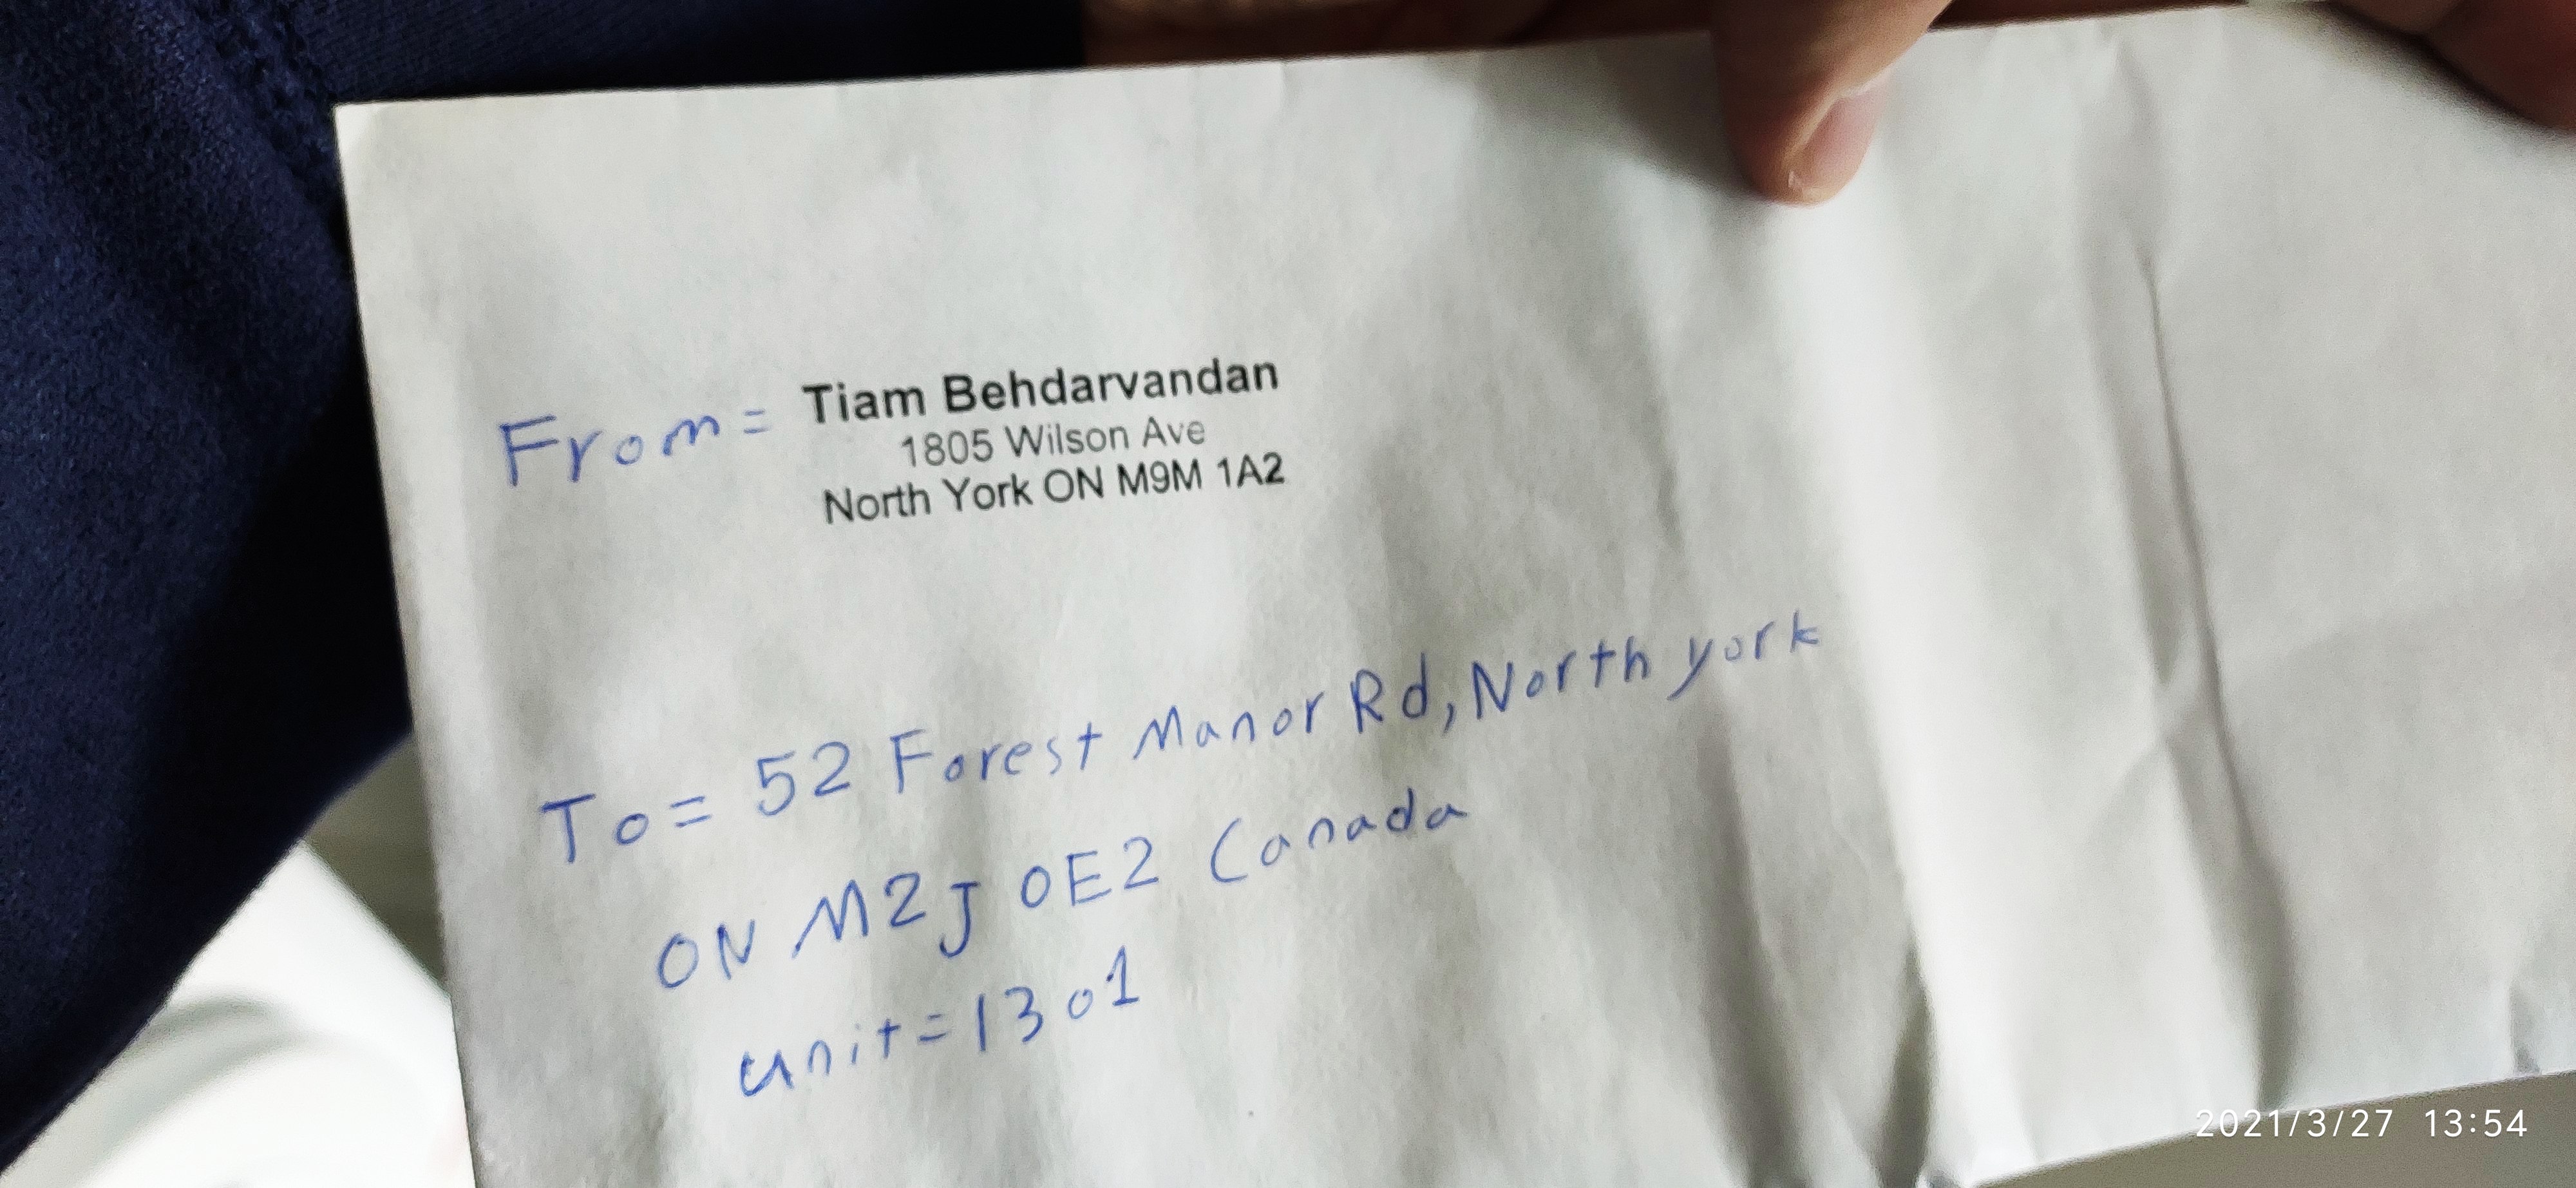 From = Tiam Behdarvandan
1805 Wilson Ave
North York ON M9M 1A2
To = 52 Forest Manor Rd, North york
ON M2J 0E2 Canada
unit = 1301
2021/3/27 13:54